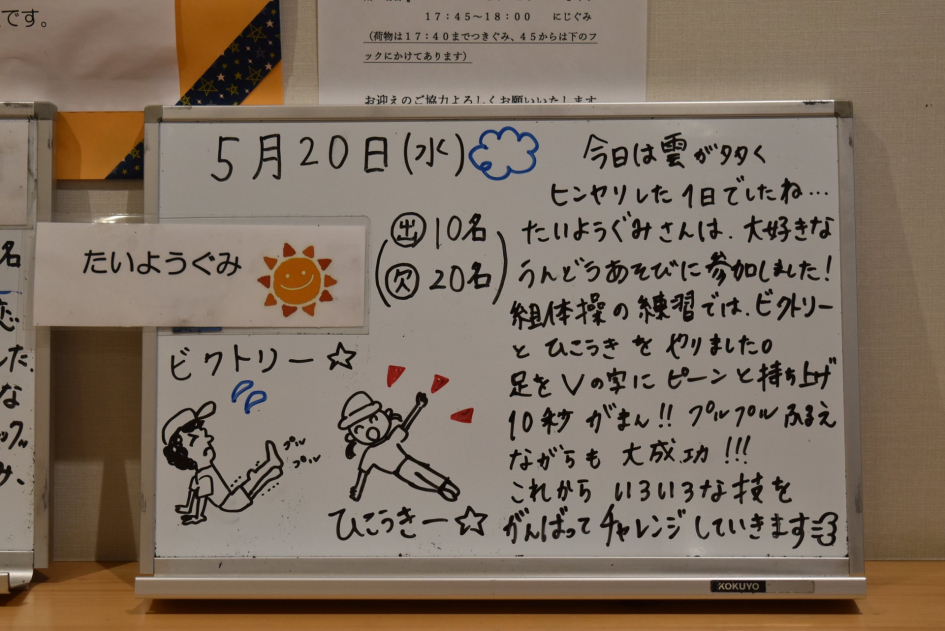 です。
17:45～18:00 にじぐみ
(荷物は17:40までつきぐみ、45からは下のフ
ックにかけてあります)
お迎えのご協力よろしくお願いいたします
5月20日(水)
たいようぐみ
出 10名
欠 20名
今日は雲が多く
ヒンヤリした1日でしたね…
たいようぐみさんは、大好きな
うんどうあそびに参加しました!
組体操の練習では、ビクトリー
と ひこうき を やりました。
足を Vの字に ピーン と 持ち上げ
10秒 がまん!! プルプル ふるえ
ながらも 大成功!!!
これから いろいろな技を
がんばって チャレンジ していきます
ビクトリー☆
プル
プル
ひこうきー☆
名
した
な
KOKUYO